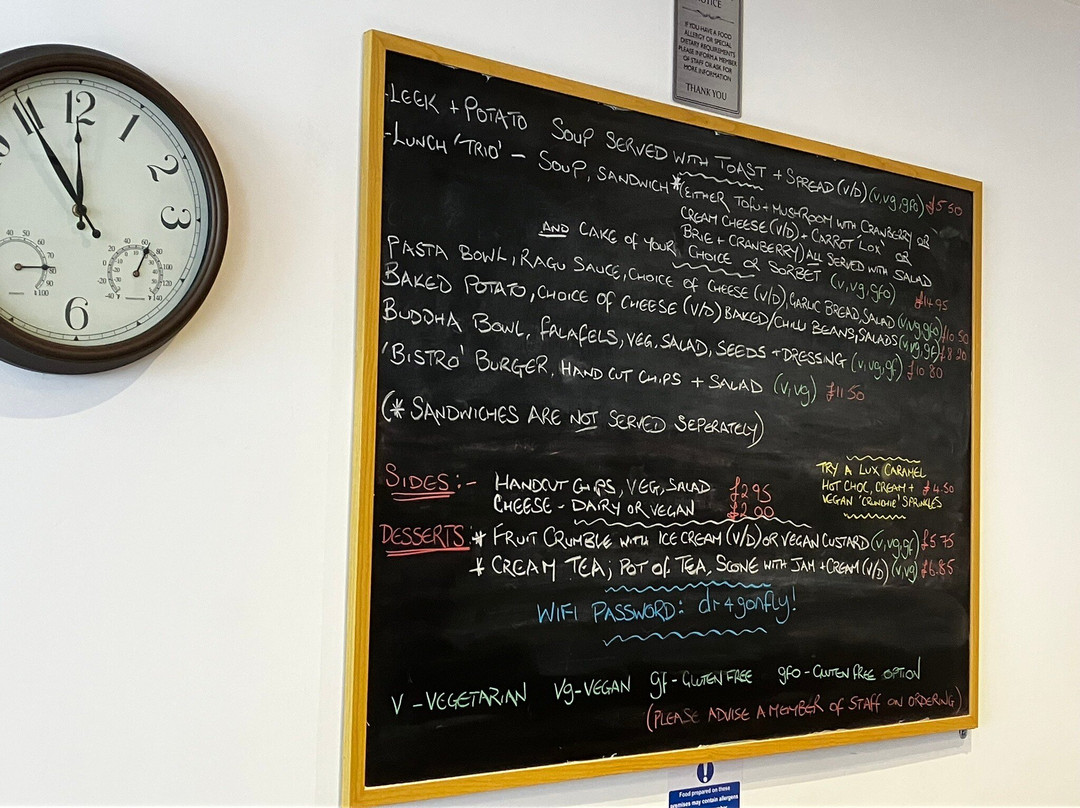 NOTICE
IF YOU HAVE A FOOD
ALLERGY OR SPECIAL
DIETARY REQUIREMENTS
PLEASE INFORM A MEMBER
OF STAFF OR ASK FOR
MORE INFORMATION
THANK YOU
- LEEK + POTATO SOUP SERVED WITH TOAST + SPREAD (V/D) (v, vg, gfo) £5.50
- LUNCH 'TRIO' - SOUP, SANDWICH * (EITHER TOFU + MUSHROOM WITH CRANBERRY OR
CREAM CHEESE (V/D) + CARROT LOX OR
BRIE + CRANBERRY) ALL SERVED WITH SALAD
AND CAKE OF YOUR CHOICE OR SORBET (v, vg, gfo) £14.95
PASTA BOWL, RAGU SAUCE, CHOICE OF CHEESE (V/D), GARLIC BREAD, SALAD (v, vg, gfo) £10.50
BAKED POTATO, CHOICE OF CHEESE (V/D) BAKED/CHILLI BEANS, SALADS (v, vg, gf) £8.20
BUDDHA BOWL, FALAFELS, VEG. SALAD, SEEDS + DRESSING (v, vg, gf) £10.80
'BISTRO' BURGER, HAND CUT CHIPS + SALAD (v, vg) £11.50
(* SANDWICHES ARE NOT SERVED SEPERATELY)
SIDES :- HANDCUT CHIPS, VEG, SALAD £2.95
CHEESE - DAIRY OR VEGAN £2.00
TRY A LUX CARAMEL
HOT CHOC, CREAM + £4.50
VEGAN 'CRUNCHIE' SPRINKLES
DESSERTS: * FRUIT CRUMBLE WITH ICE CREAM (V/D) OR VEGAN CUSTARD (v, vg, gf) £5.75
* CREAM TEA; POT OF TEA, SCONE WITH JAM + CREAM (V/D) (v, vg) £6.85
WIFI PASSWORD: dr4gonfly!
V - VEGETARIAN Vg - VEGAN gf - GLUTEN FREE gfo - GLUTEN FREE OPTION
(PLEASE ADVISE A MEMBER OF STAFF ON ORDERING)
Food prepared on these
premises may contain allergens
12
1
2
3
6
11